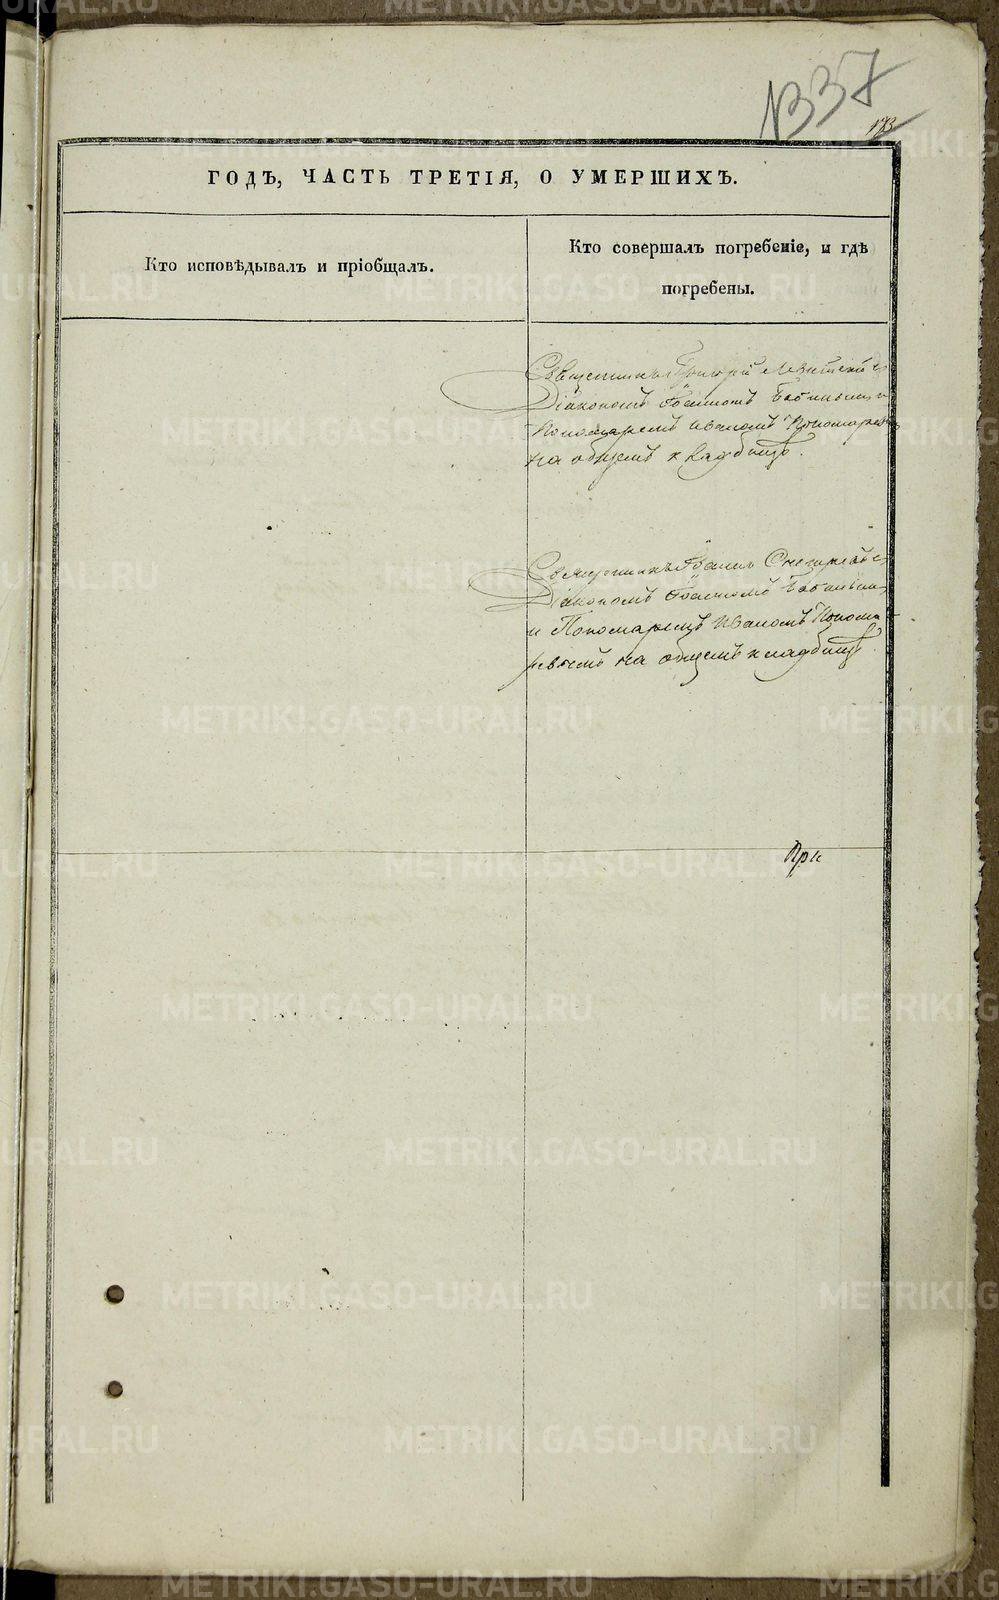 1337
193
ГОДЪ, ЧАСТЬ ТРЕТІЯ, О УМЕРШИХЪ.
Кто исповѣдывалъ и пріобщалъ.
Кто совершалъ погребеніе, и гдѣ
погребены.
Священникъ Григорій Левитскій с
Діакономъ Іоанномъ и
Пономаремъ Иваномъ Пономарев
на общемъ кладбищѣ.
Священникъ Іоаннъ Снегиревъ с
Діакономъ Іоанномъ
и Пономаремъ Иваномъ Понома-
ревымъ на общемъ кладбищѣ.
METRIKI.GASO-URAL.RU